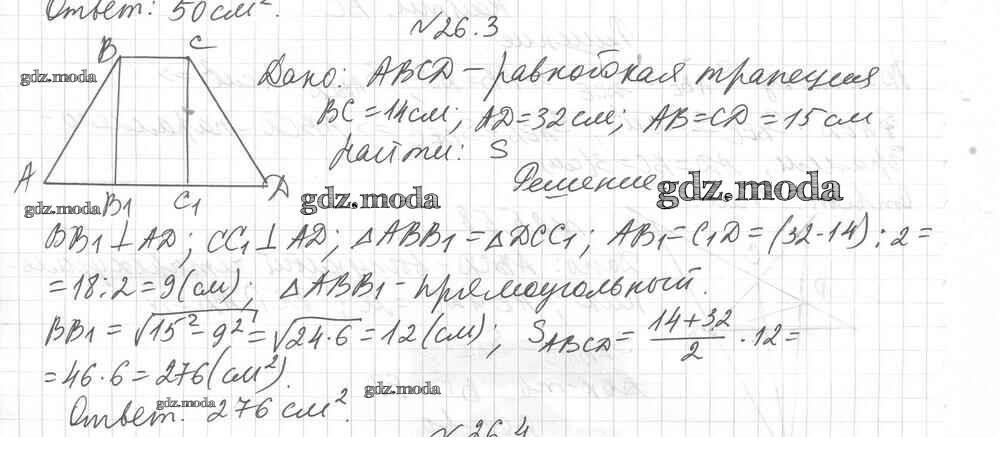 Ответ: 50 см².
№26.3
B C
gdz.moda
Дано: ABCD – равнобокая трапеция
BC = 14 см; AD = 32 см; AB = CD = 15 см
Найти: S
A D
Решение
gdz.moda B1 C1 gdz.moda gdz.moda
BB1 ⊥ AD; CC1 ⊥ AD; △ABB1 = △DCC1; AB1 = C1D = (32-14) : 2 =
= 18 : 2 = 9 (см); △ABB1 - прямоугольный.
BB1 = √15² - 9² = √24·6 = 12 (см); SABCD = 14+32/2 · 12 =
= 46 · 6 = 276 (см²).
gdz.moda gdz.moda
Ответ: 276 см².
№26.4